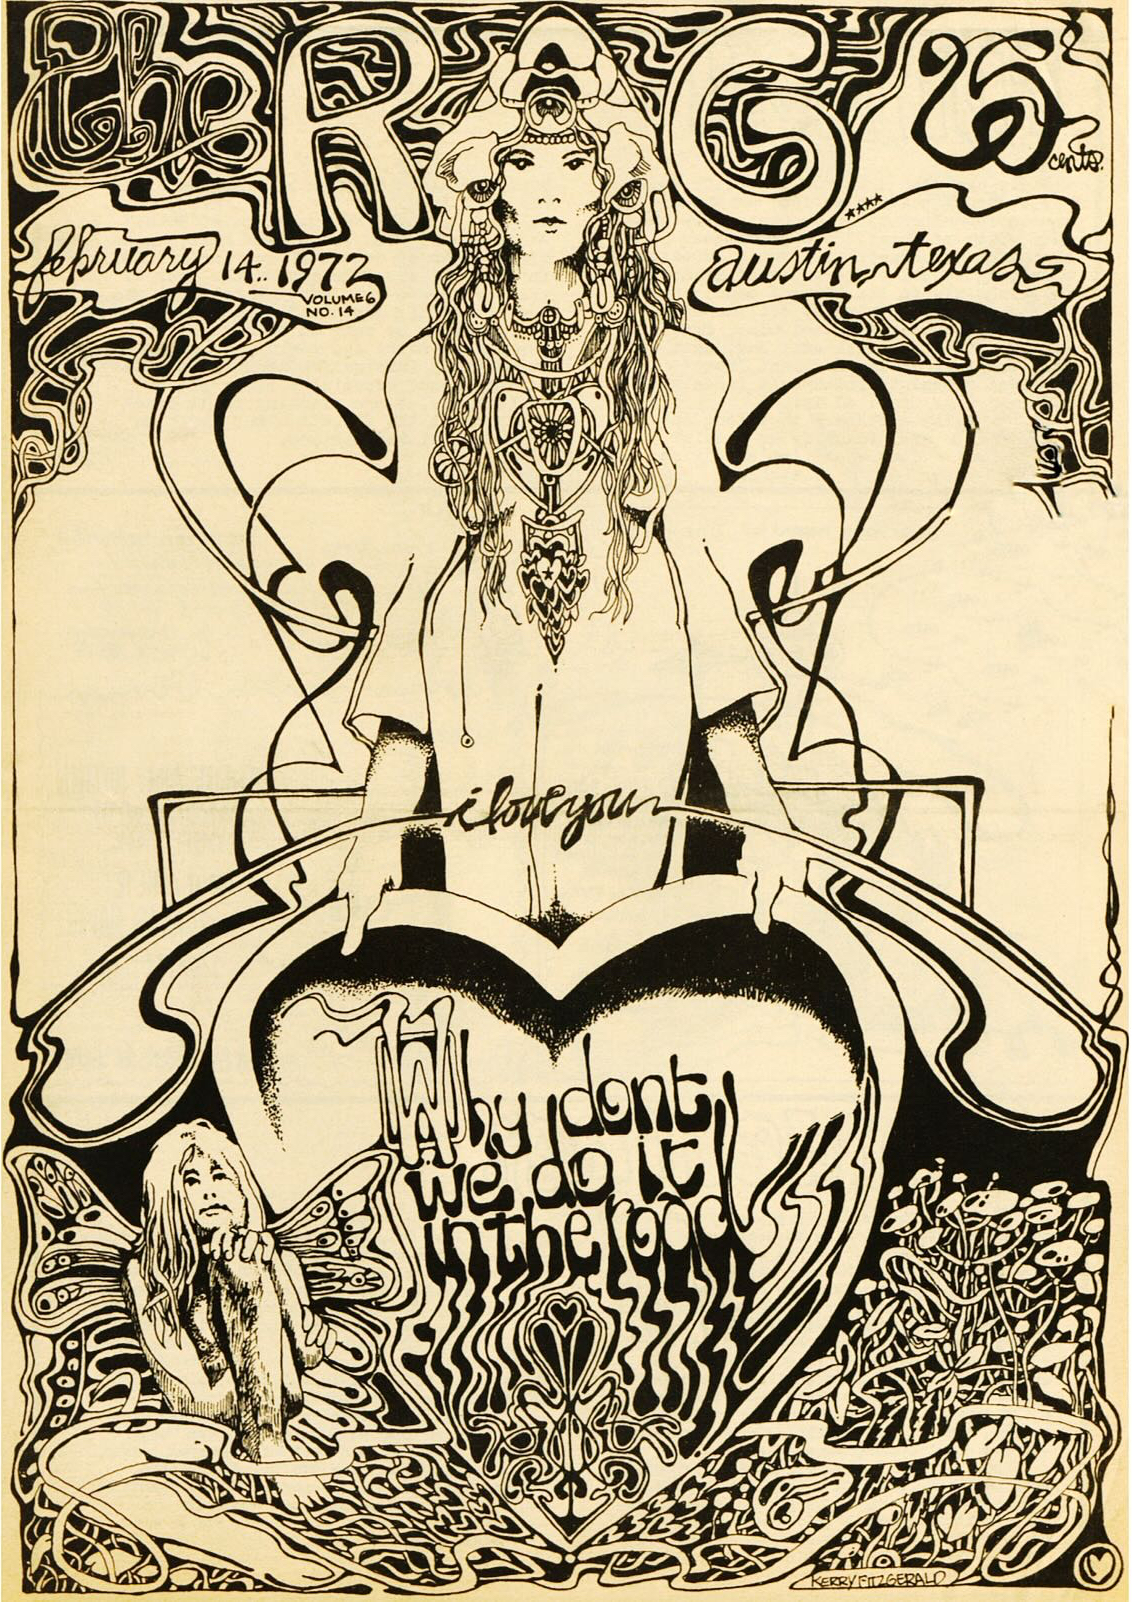 the RAG 25
cents.
****
february 14.. 1972
VOLUME 6
NO. 14
austin, texas
i love you
Why dont
we do it
in the road
KERRY FITZGERALD